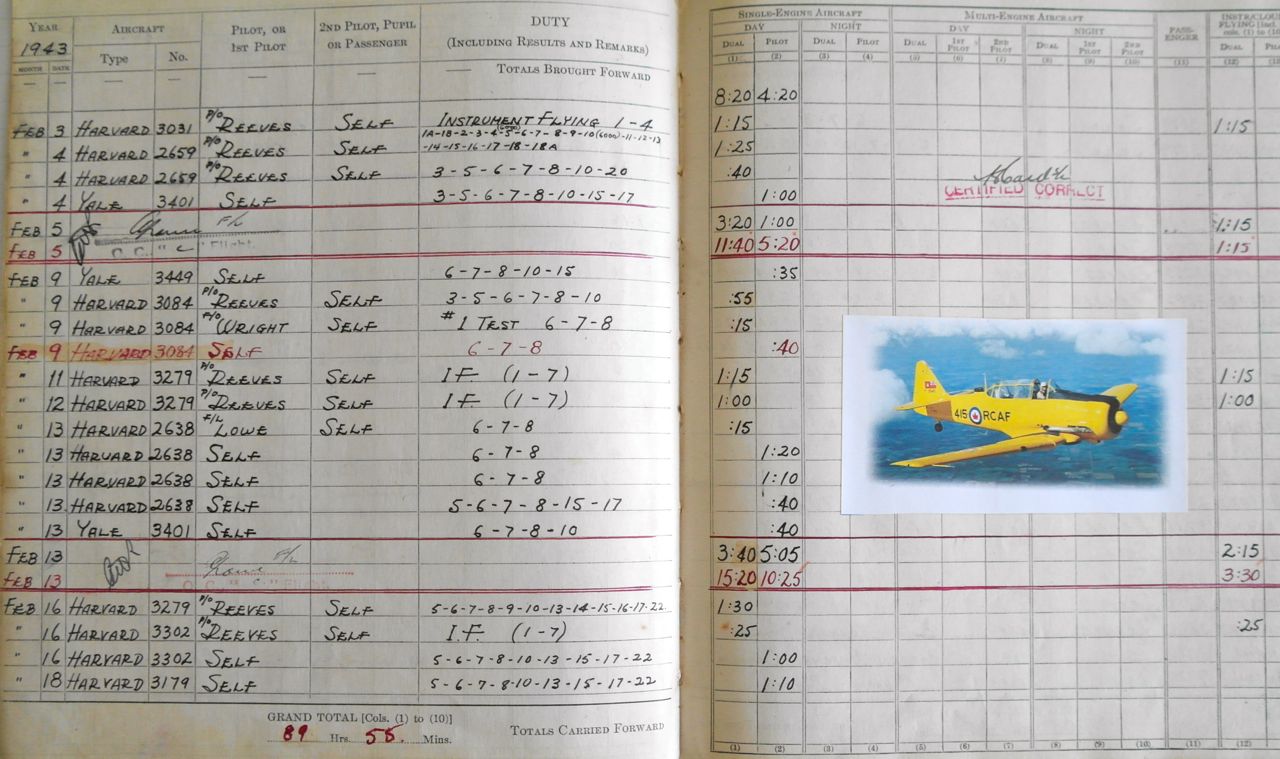 YEAR AIRCRAFT PILOT, OR 1ST PILOT 2ND PILOT, PUPIL OR PASSENGER DUTY (INCLUDING RESULTS AND REMARKS) SINGLE-ENGINE AIRCRAFT MULTI-ENGINE AIRCRAFT PASSENGER
1943 DAY NIGHT DAY NIGHT
MONTH DATE Type No. — — — DUAL PILOT DUAL PILOT DUAL 1ST PILOT 2ND PILOT DUAL 1ST PILOT 2ND PILOT DUAL
(1) (2) (3) (4) (5) (6) (7) (8) (9) (10) (11) (12)
— — — — TOTALS BROUGHT FORWARD
8:20 4:20
FEB 3 HARVARD 3031 P/O REEVES SELF INSTRUMENT FLYING 1-4 1:15 1:15
" 4 HARVARD 2659 P/O REEVES SELF 1A-1B-2-3-4-5(6000)-6-7-8-9-10(6000)-11-12-13
-14-15-16-17-18-18A 1:25
" 4 HARVARD 2659 P/O REEVES SELF 3-5-6-7-8-10-20 :40
" 4 YALE 3401 SELF 3-5-6-7-8-10-15-17 1:00 CERTIFIED CORRECT
FEB 5 F/L 3:20 1:00 1:15
FEB 5 O.C. "C" Flight 11:40 5:20 1:15
FEB 9 YALE 3449 SELF 6-7-8-10-15 :35
" 9 HARVARD 3084 P/O REEVES SELF 3-5-6-7-8-10 :55
" 9 HARVARD 3084 F/O WRIGHT SELF #1 TEST 6-7-8 :15
FEB 9 HARVARD 3084 SELF 6-7-8 :40
" 11 HARVARD 3279 P/O REEVES SELF I.F. (1-7) 1:15 1:15
" 12 HARVARD 3279 P/O REEVES SELF I.F. (1-7) 1:00 1:00
415 RCAF
" 13 HARVARD 2638 F/L LOWE SELF 6-7-8 :15
" 13 HARVARD 2638 SELF 6-7-8 1:20
" 13 HARVARD 2638 SELF 6-7-8 1:10
" 13 HARVARD 2638 SELF 5-6-7-8-15-17 :40
" 13 YALE 3401 SELF 6-7-8-10 :40
FEB 13 F/L 3:40 5:05 2:15
FEB 13 O.C. "C" Flight 15:20 10:25 3:30
FEB 16 HARVARD 3279 P/O REEVES SELF 5-6-7-8-9-10-13-14-15-16-17-22 1:30
" 16 HARVARD 3302 P/O REEVES SELF I.F. (1-7) :25 :25
" 16 HARVARD 3302 SELF 5-6-7-8-10-13-15-17-22 1:00
" 18 HARVARD 3179 SELF 5-6-7-8-10-13-15-17-22 1:10
GRAND TOTAL [Cols. (1) to (10)] TOTALS CARRIED FORWARD
89 Hrs. 55 Mins.
(1) (2) (3) (4) (5) (6) (7) (8) (9) (10) (11) (12)